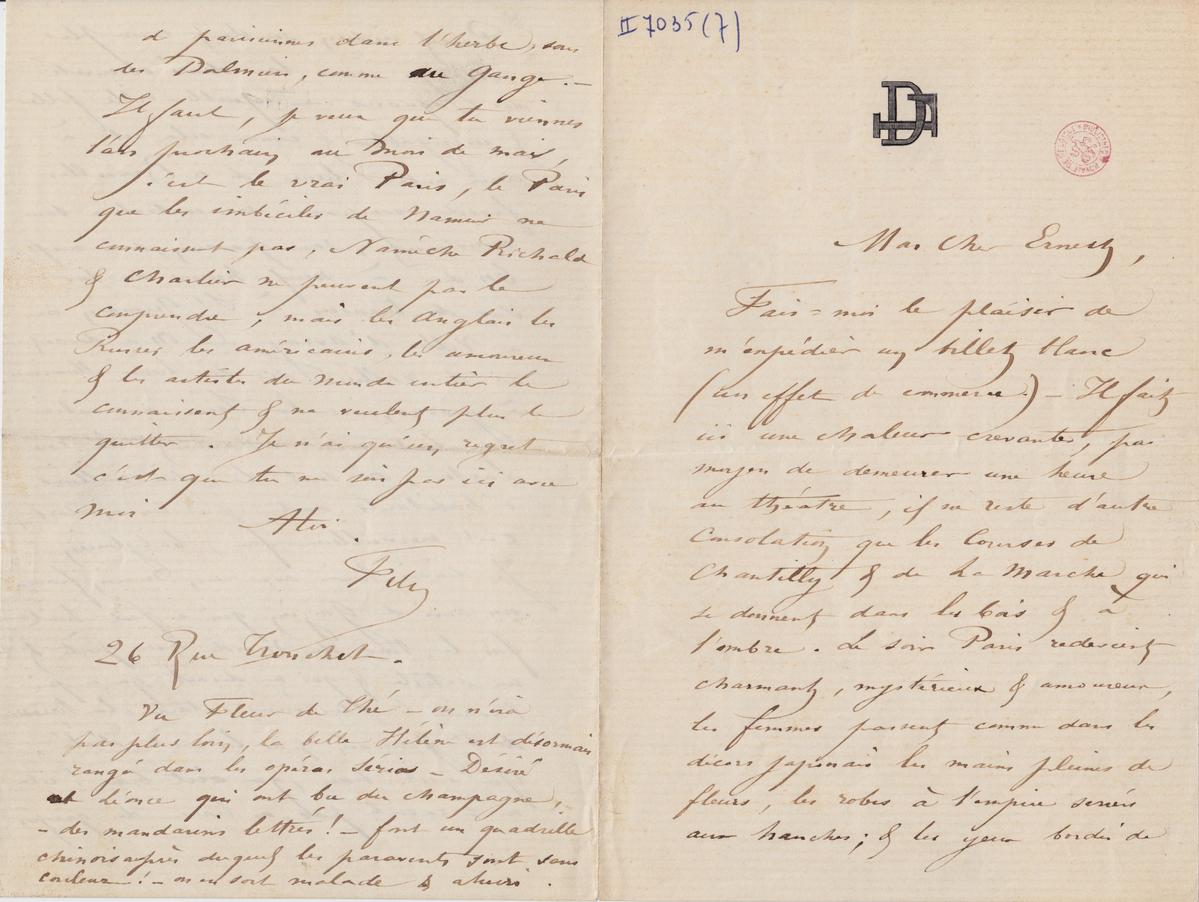 II 7035 (7)
Mon Cher Ernest,
Fais-moi le plaisir de
m'expédier un billet blanc
(un effet de commerce) – Il fait
ici une chaleur crevante, pas
moyen de demeurer une heure
au théatre, il ne reste d'autre
Consolation que les Courses de
Chantilly & de La Marche qui
se donnent dans les bois & à
l'ombre. Le soir Paris redevient
charmant, mystérieux & amoureux,
les femmes passent comme dans les
décors japonais les mains pleines de
fleurs, les robes à l'empire serrées
aux hanches; & les yeux bordés de
d parisiennes dans l'herbe, sous
les Palmiers, comme au Gange. –
Il faut, je veux que tu viennes
l'an prochain au mois de mai,
c'est le vrai Paris, le Paris
que les imbéciles de Namur ne
connaissent pas, Namèche Richald
& Charlier ne peuvent pas le
comprendre, mais les Anglais les
Russes les américains, les amoureux
& les artistes du monde entier le
connaissent & ne veulent plus le
quitter. Je n'ai qu'un regret
c'est que tu ne sois pas ici avec
moi
26 Rue Tronchet.
Vu Fleur de Thé – on n'ira
pas plus loin, la belle Hélène est désormais
rangée dans les opéras serias – Désiré
et Léonce qui ont bu du champagne,
– des mandarins lettrés! – font un quadrille
chinois auprès duquel les paravents sont sans
couleur! – on en sort malade & ahuri.